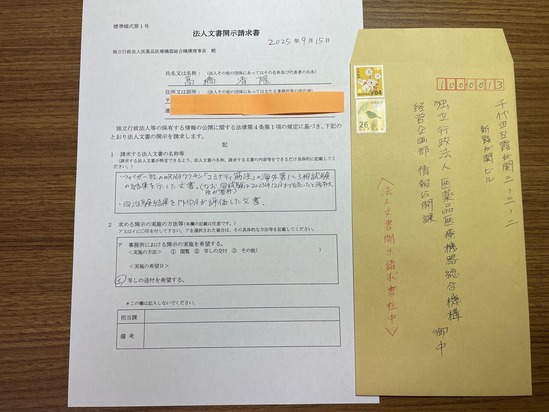 標準様式第1号
法人文書開示請求書
2025年9月15日
独立行政法人医薬品医療機器総合機構理事長 殿
氏名又は名称：（法人その他の団体にあってはその名称及び代表者の氏名）
高橋 清隆
住所又は居所：（法人その他の団体にあっては主たる事務所等の所在地）
〒
連
独立行政法人等の保有する情報の公開に関する法律第4条第1項の規定に基づき、下記の
とおり法人文書の開示を請求します。
記
1 請求する法人文書の名称等
（請求する法人文書が特定できるよう、法人文書の名称、請求する文書の内容等をできるだけ具体的に記載してください。）
・ファイザー社のmRNAワクチン「コミナティ筋注」の海外第1〜3相試験
・治験結果をPMDAが評価した文書
2 求める開示の実施の方法等（本欄の記載は任意です。）
ア又はイに○印を付して下さい。アを選択された場合は、その具体的な方法等を記載してください。
ア 事務所における開示の実施を希望する。
＜実施の方法＞ ① 閲覧 ② 写しの交付 ③ その他（ ）
＜実施の希望日＞
イ 写しの送付を希望する。
＊この欄は記入しないでください。
担当課
備考
84
26
1000013
千代田区霞が関三-三-二
新霞が関ビル
独立行政法人 医薬品医療機器総合機構 御中
経営企画部 情報公開課
＜法人文書開示請求書在中＞